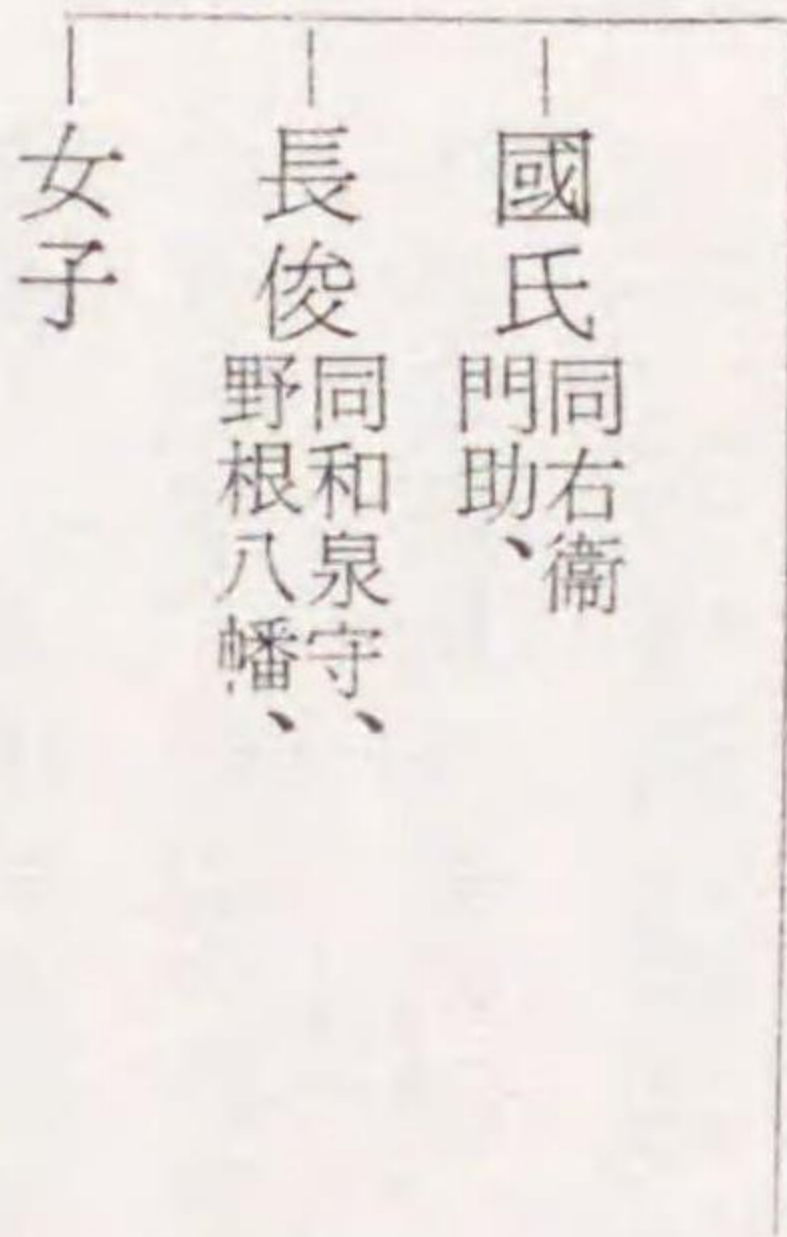 國氏
同右衞
門助、
長俊
同和泉守、
野根八幡、
女子